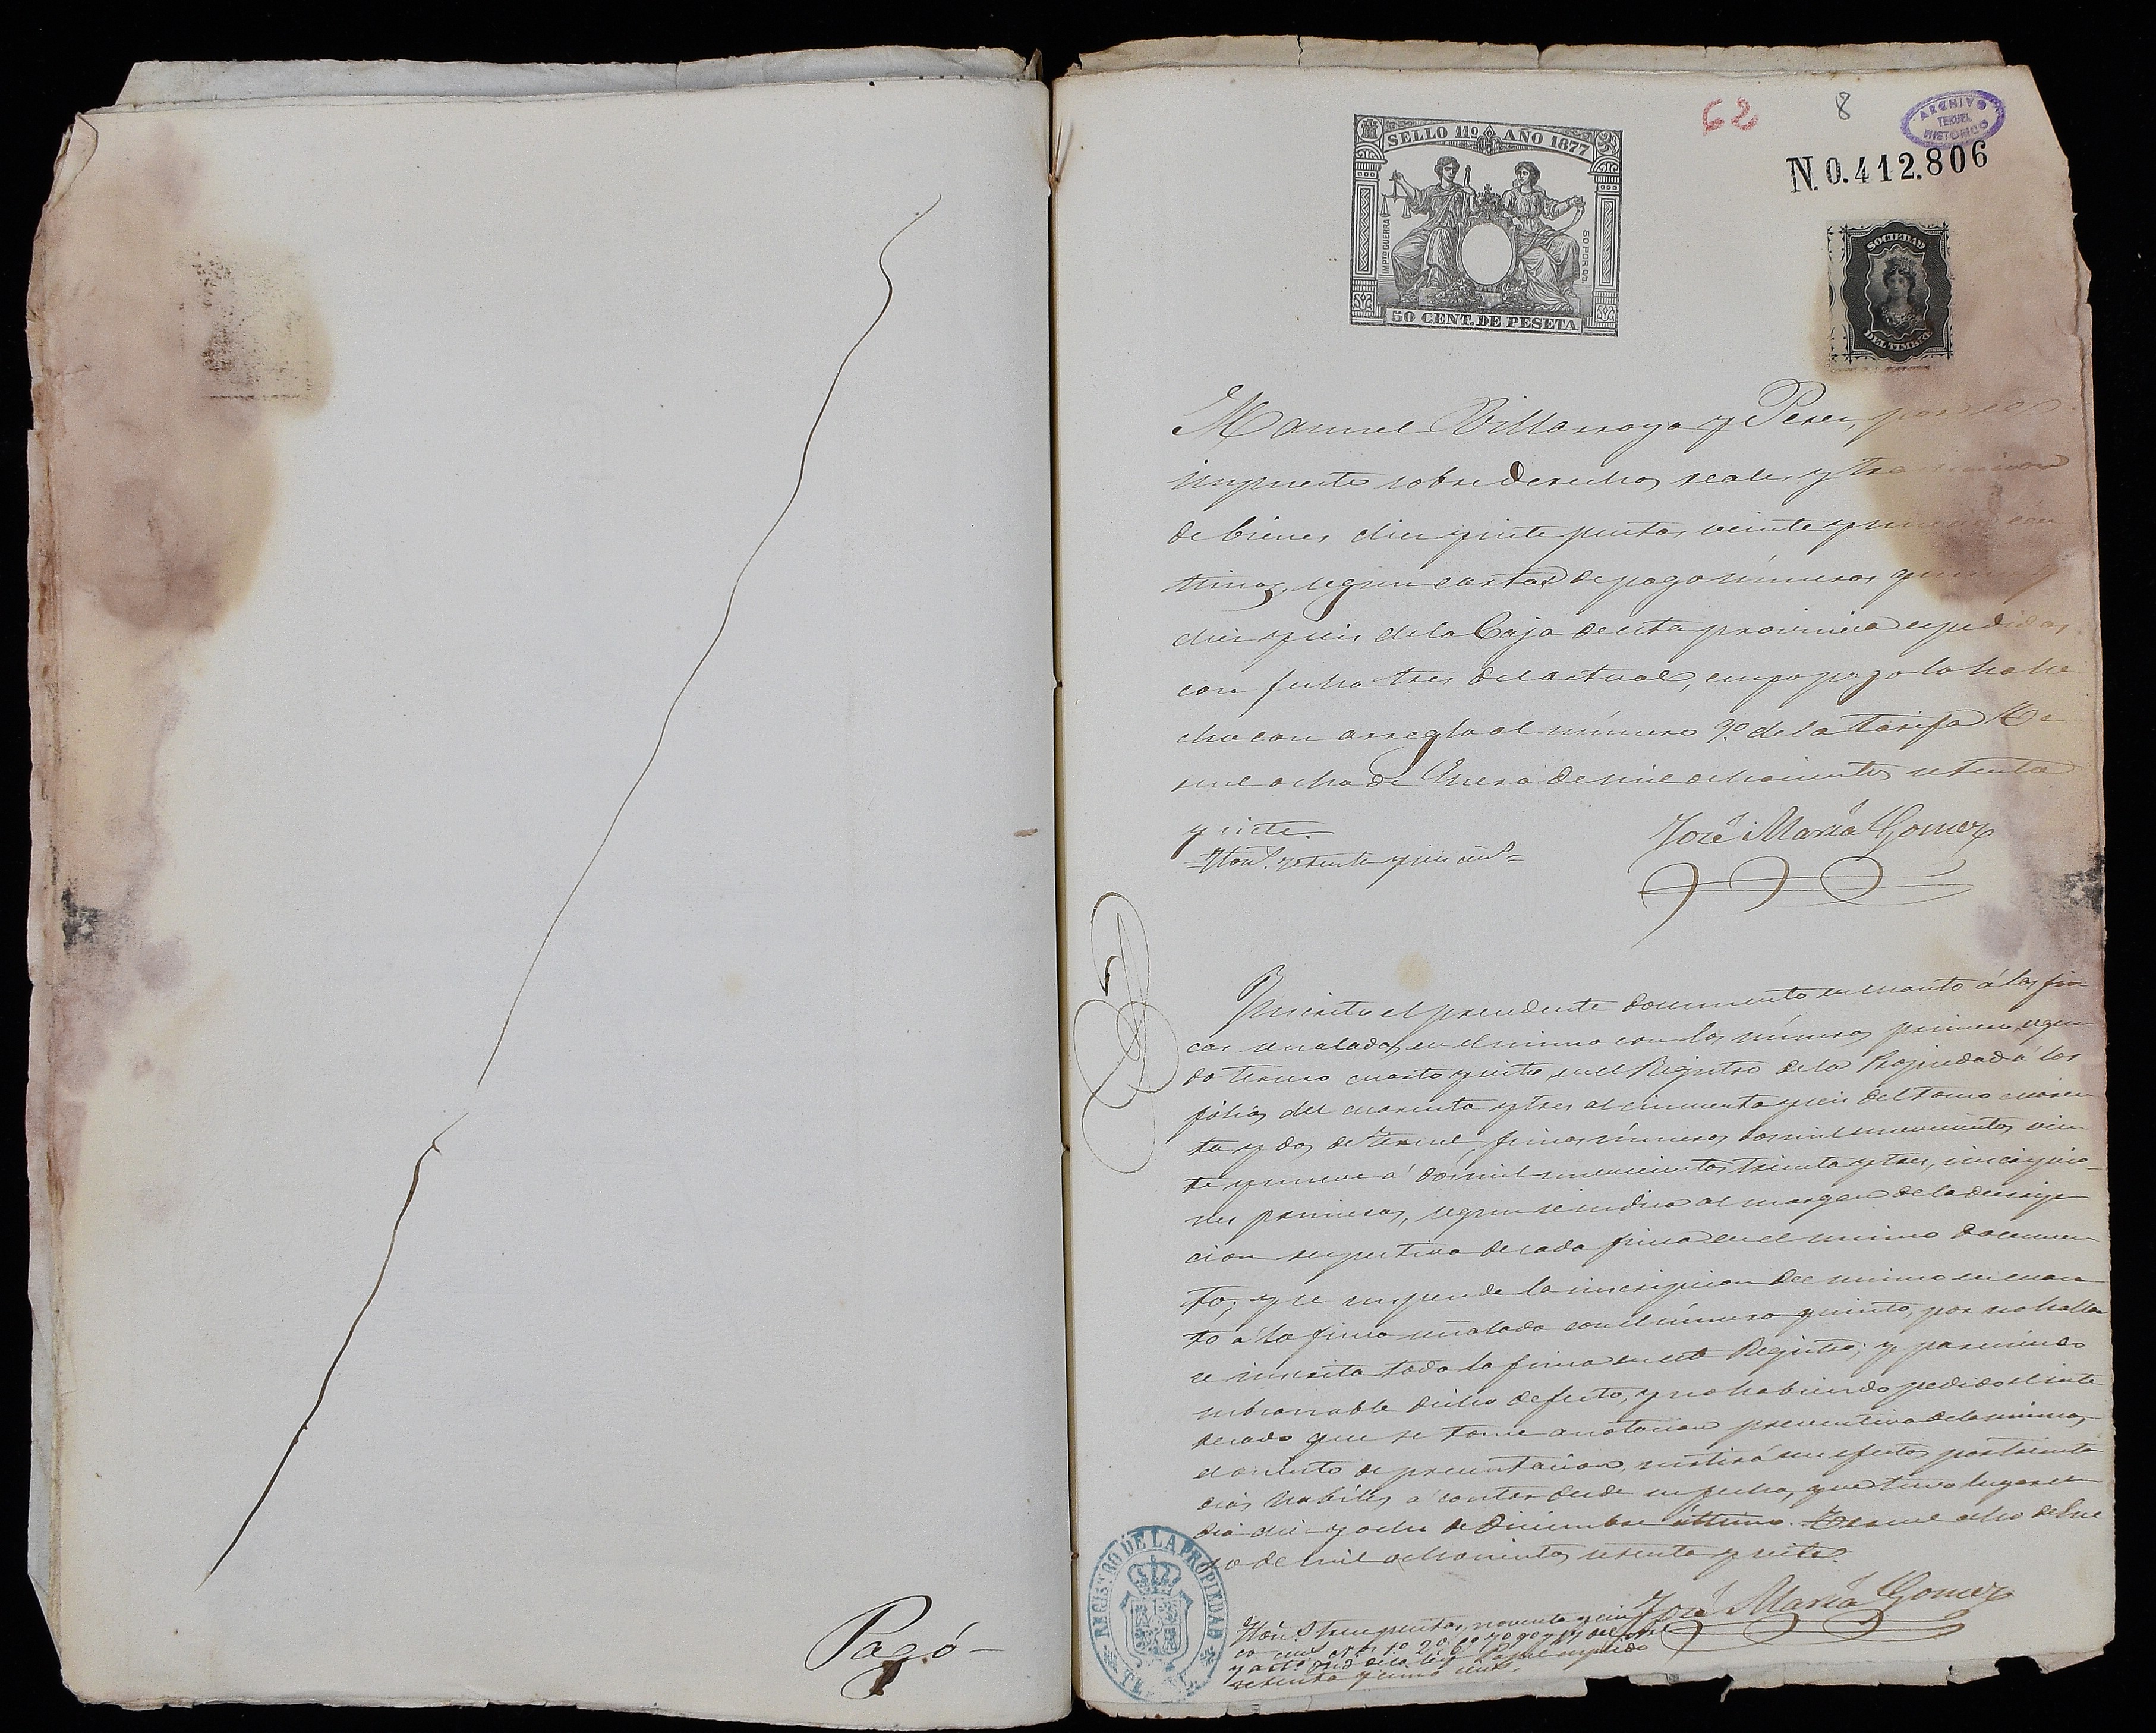 Pagó
62
8
ARCHIVO
TERUEL
HISTORICO
N. 0.412.806
SELLO 11º AÑO 1877
IMPTO GUERRA
50 POR 00
50 CENT. DE PESETA
SOCIEDAD
DEL TIMBRE
Manuel Villarroya y Perez, por el
impuesto sobre derechos reales y trasmision
de bienes diez y siete pesetas veinte y cinco cén
timos, segun cartas de pago números quince y
diez y seis de la Caja de esta provincia expedidas
con fecha tres del actual, cuyo pago lo ha he
cho con arreglo al número 9º de la tarifa. Te
ruel ocho de Enero de mil ochocientos setenta
y siete.
José Maria Gomez
=Hon.s setenta y cinco cén.s=
Inscrito el precedente documento en cuanto á las fin
cas señaladas en el mismo con los números primero, segun
do tercero cuarto y sesto, en el Registro de la Propiedad á los
fólios del cuarenta y tres al cincuenta y seis del tomo cuaren
ta y dos de Teruel, fincas números dos mil novecientos vein
te y nueve á dos mil novecientos treinta y tres, inscripcio
nes primeras, segun se indica al margen de la descrip
cion respectiva de cada finca en el mismo documen
to; y se suspende la inscripcion del mismo en cuan
to á la finca señalada con el número quinto, por no hallar
se inscrita toda la finca en este Registro; y pareciendo
subsanable dicho defecto, y no habiendo pedido el inte
resado que se tome anotacion preventiva de la misma,
el asiento de presentacion, surtirá sus efectos por treinta
dias habiles á contar desde su fecha, que tuvo lugar el
dia diez y ocho de Diciembre último. Teruel ocho de Ene
ro de mil ochocientos setenta y siete.
José Maria Gomez
Hon.s tres pesetas, noventa y cin
co cén.s n.os 1º 2º 6º 7º 9º y 14 del aral
y art.º de la ley Papel suplido
setenta y cinco cén.s
REGISTRO DE LA PROPIEDAD
TERUEL